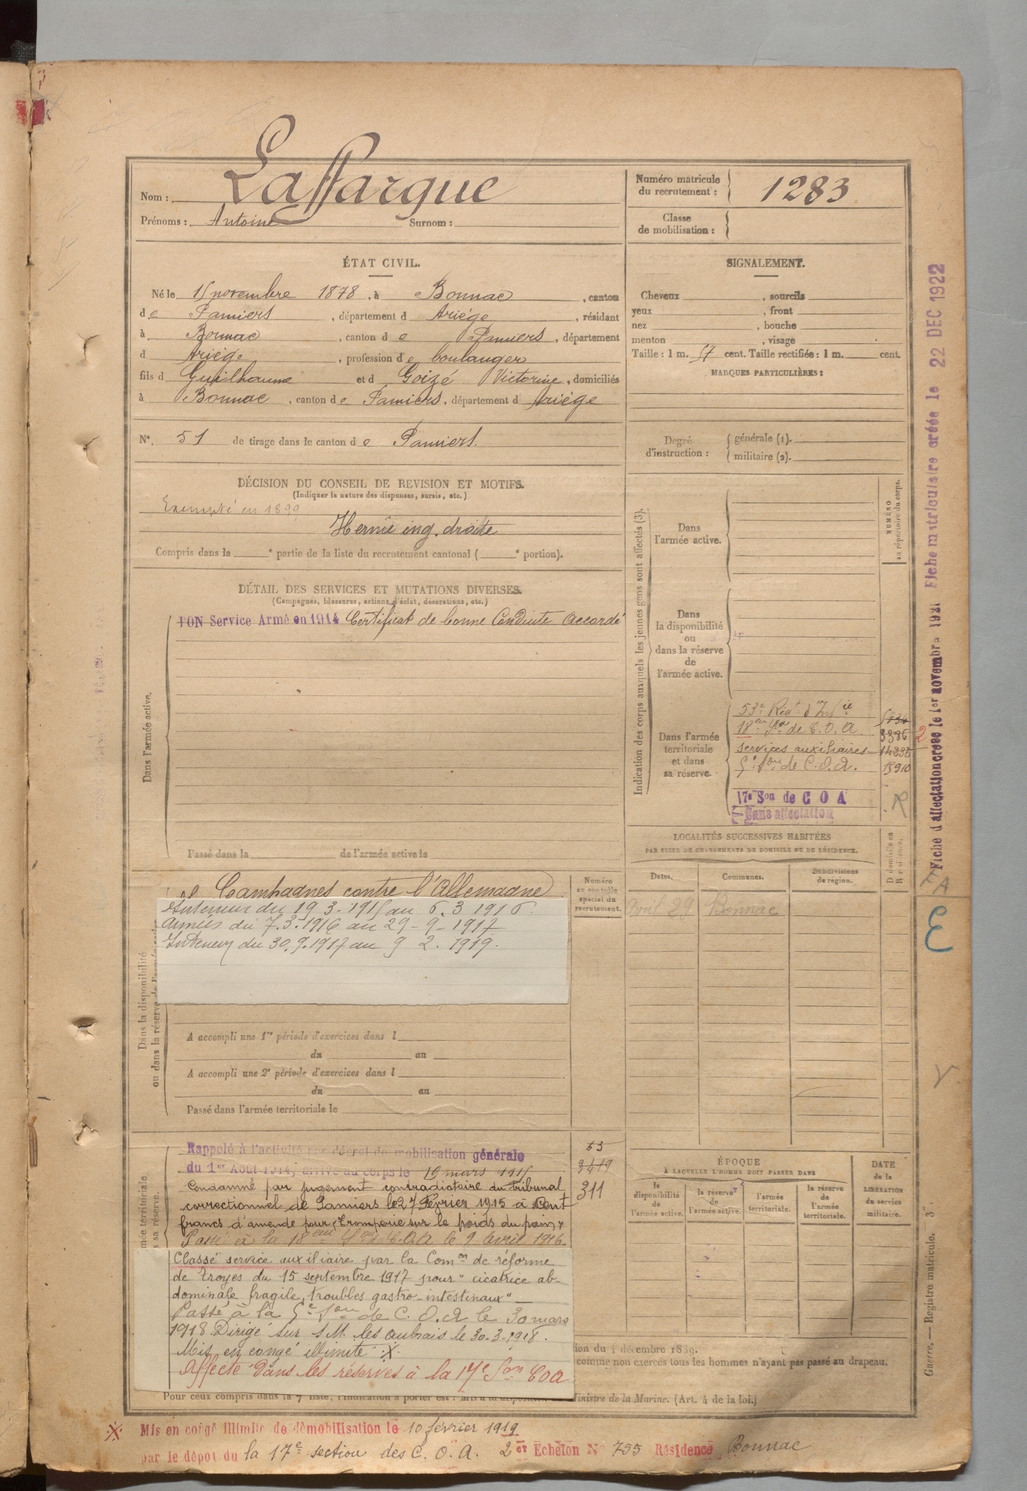 Nom : Laffargue
Prénoms : Antoine Surnom :
Numéro matricule du recrutement : 1283
Classe de mobilisation :
ÉTAT CIVIL.
Né le 15 novembre 1878, à Bonnac, canton
de Pamiers, département d Ariège, résidant
à Bonnac, canton de Pamiers, département
d Ariège, profession de boulanger
fils d Guilhaume et d Goizé Victorine, domiciliés
à Bonnac, canton de Pamiers, département d Ariège
N°. 51 de tirage dans le canton de Pamiers.
SIGNALEMENT.
Cheveux , sourcils
yeux , front
nez , bouche
menton , visage
Taille : 1 m. 57 cent. Taille rectifiée : 1 m. cent.
MARQUES PARTICULIÈRES :
Degré d'instruction : générale (1).
militaire (2).
DÉCISION DU CONSEIL DE REVISION ET MOTIFS.
(Indiquer la nature des dispenses, sursis, etc.)
Exempté en 1899
Hernie ing. droite
Compris dans la e partie de la liste du recrutement cantonal ( e portion).
DÉTAIL DES SERVICES ET MUTATIONS DIVERSES.
(Campagnes, blessures, actions d'éclat, décorations, etc.)
BON Service Armé en 1914 Certificat de bonne Conduite accordé
Dans l'armée active.
Passé dans la de l'armée active le
Indication des corps auxquels les jeunes gens sont affectés (3).
Dans l'armée active.
Dans la disponibilité ou dans la réserve de l'armée active.
Dans l'armée territoriale et dans sa réserve.
NUMÉRO au répertoire du corps.
53e Régt d'Infie
18me Son de C.O.A
3386
services auxiliaires
5e Son de C.O.A.
17e Son de COA
Sans affectation
R
LOCALITÉS SUCCESSIVES HABITÉES
PAR SUITE DE CHANGEMENTS DE DOMICILE OU DE RÉSIDENCE.
Dates. Communes. Subdivisions de région. D domicile ou R résidence.
Avril 29 Bonnac
Numéro au contrôle spécial du recrutement.
Dans la disponibilité ou dans la réserve de l'armée active
Campagnes contre l'Allemagne
Intérieur du 19.3.1915 au 6.3.1916.
Armées du 7.3.1916 au 29-9-1917
Intérieur du 30.9.1917 au 9 2.1919.
A accompli une 1re période d'exercices dans l
du au
A accompli une 2e période d'exercices dans l
du au
Passé dans l'armée territoriale le
Rappelé à l'activité par décret de mobilisation générale
du 1er Août 1914, arrivé au corps le 19 mars 1915
Condamné par jugement contradictoire du tribunal
correctionnel de Pamiers le 27 Février 1915 à Cent
francs d'amende pour "tromperie sur le poids du pain"
Passé à la 18eme Son C.O.A le 9 avril 1916.
311
Classé service auxiliaire par la Comon de réforme
de Troyes du 15 septembre 1917 pour "cicatrice ab-
dominale fragile, troubles gastro-intestinaux"
Passé à la 5e Son de C.O.A le 30 mars
1918 Dirigé sur S.M. les Aubrais le 30.3.1918.
Mis en congé illimité X
Affecté dans les réserves à la 17e Son COA
ÉPOQUE
À LAQUELLE L'HOMME DOIT PASSER DANS
la disponibilité de l'armée active.
la réserve de l'armée active.
l'armée territoriale.
la réserve de l'armée territoriale.
DATE de la LIBÉRATION du service militaire.
comme non exercés tous les hommes n'ayant pas passé au drapeau.
Ministre de la Marine. (Art. 4 de la loi.)
X Mis en congé illimité de démobilisation le 10 février 1919
par le dépôt du la 17e section des C.O.A. 2er Echelon N° 795 Résidence Bonnac
Fiche d'affectation créée le 1er novembre 1921 Fiche matriculaire créée le 22 DEC 1922
E
Guerre. — Registre matricule.